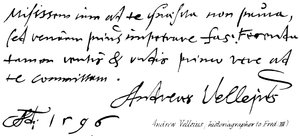 Misissem iam ad te scripta non pauca,
sed veniam prius impetrare fas.
tamen ventis & undis primo vere ad
te committam.
Andreas Vellejus
1596
Andrew Velleius, historiographer to Fred. II)